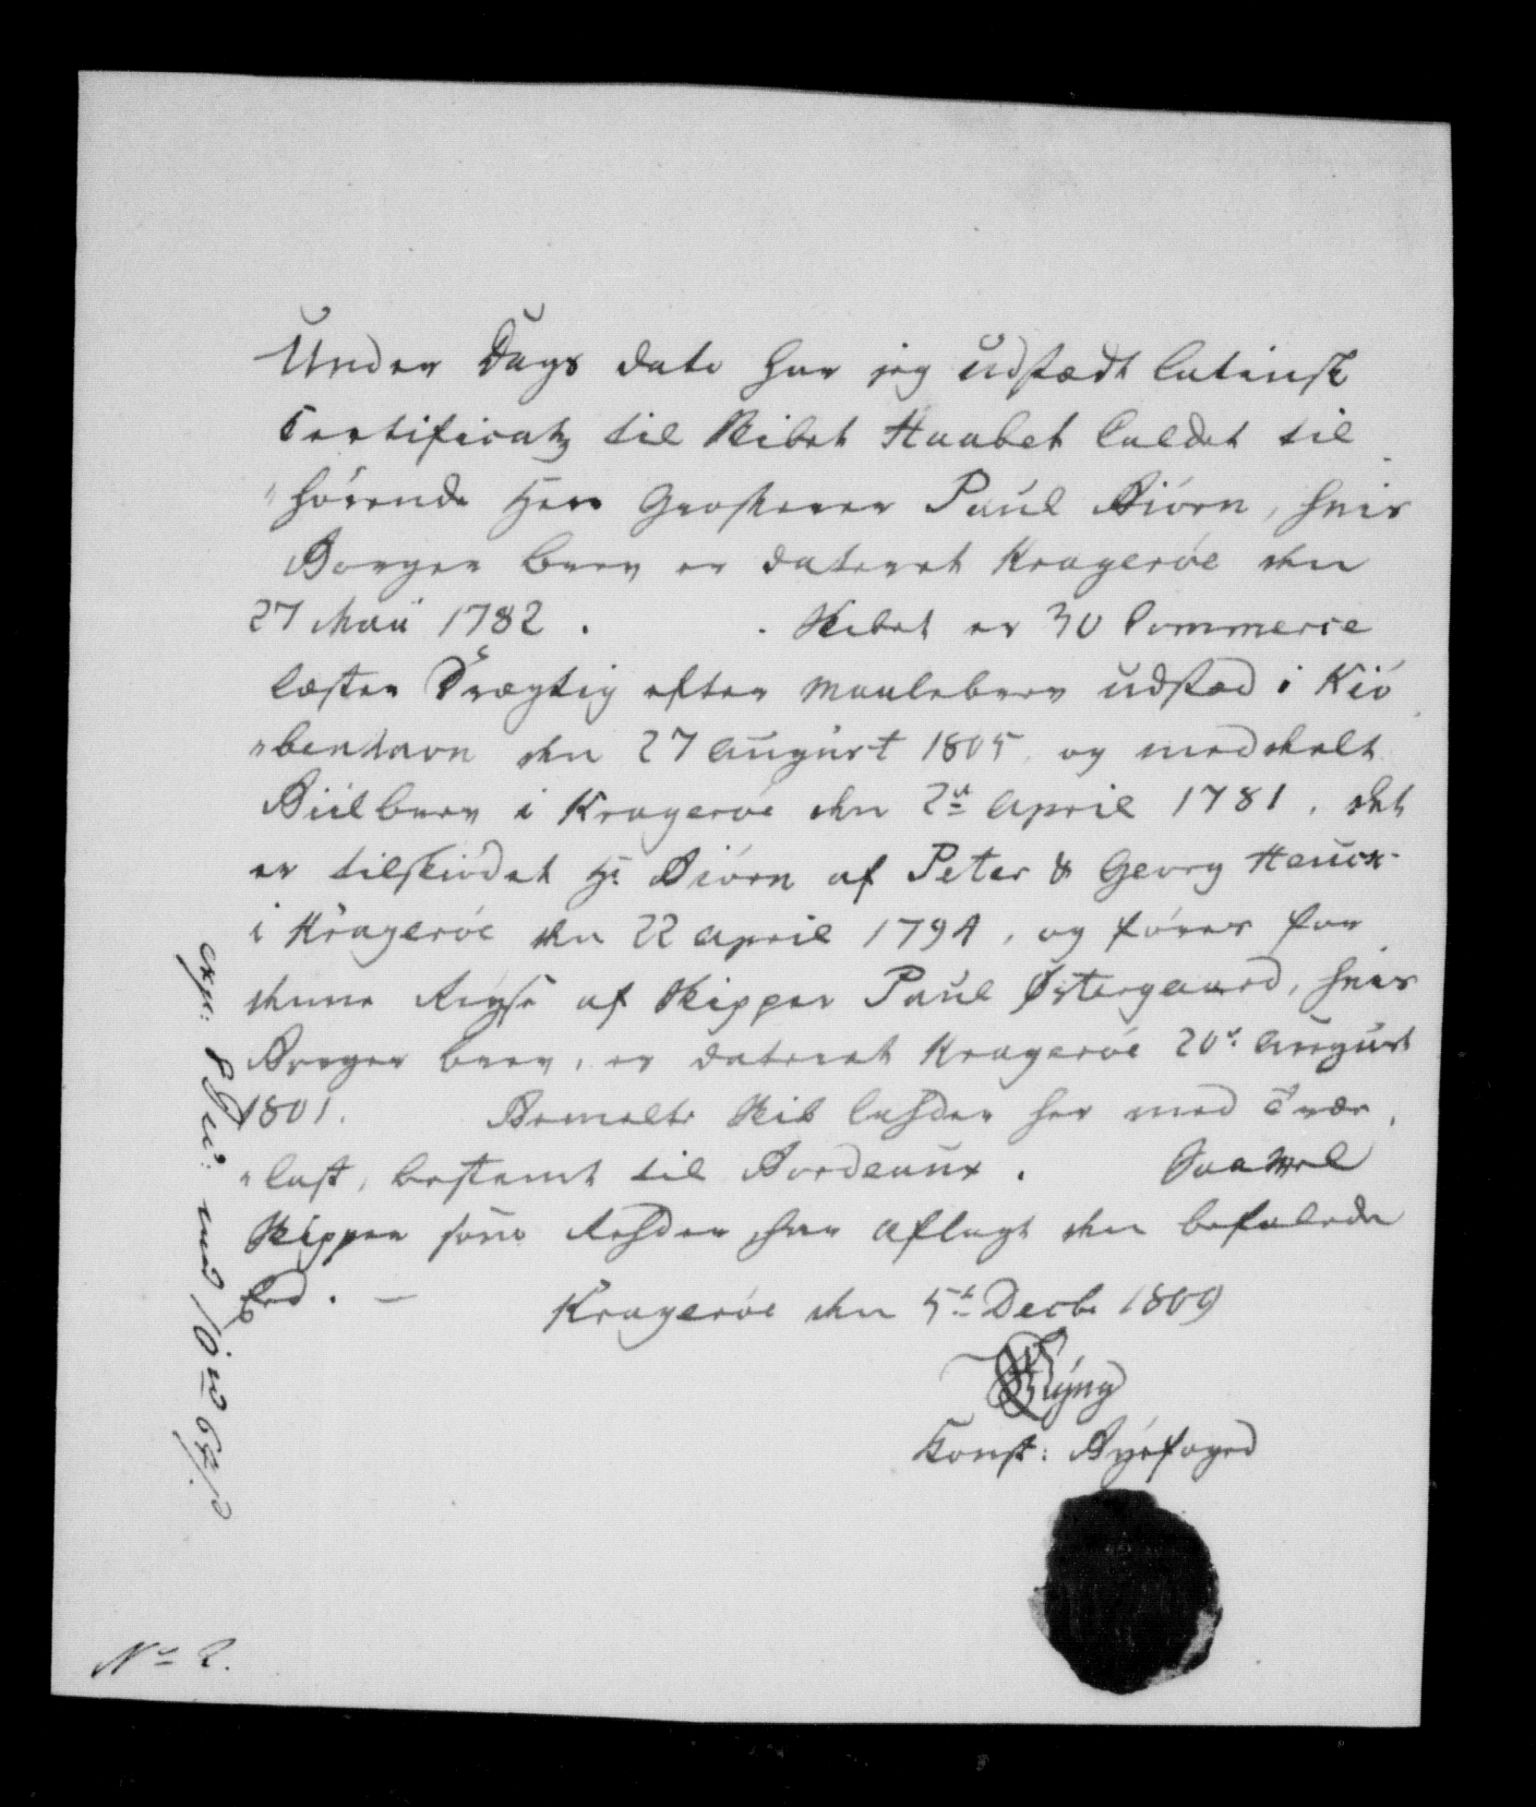 Under Dags Dato har jeg udstædt latinsk
Certificats til Skibet Haabet kaldet til
"hörende Herr Grosserer Paul Biörn, hvis
Borger brev er dateret Krageröe den
27 Maii 1782. Skibet er 30 Commerce
læster Drægtig efter Maalebrev udstæd i Kiö
"benhavn den 27 August 1805 og meddeelt
Biilbrev i Krageröe den 2den April 1781. det
er tilskiödet Hr. Biörn af Peter & Georg Heuch
i Krageröe den 22 April 1794, og föres for
denne Reyse af Skipper Paul Østergaard, hvis
Borger brev, er dateret Krageröe 20de August
1801. Bemelte Skib ladder her med Træe
"last, bestemt til Bordeaux. Saavel
Skipper som Rehder har aflagt den befalede
Eed. —
Krageröe den 5te Decbr 1809
Kyng
Konst: Byefoged
No 2.